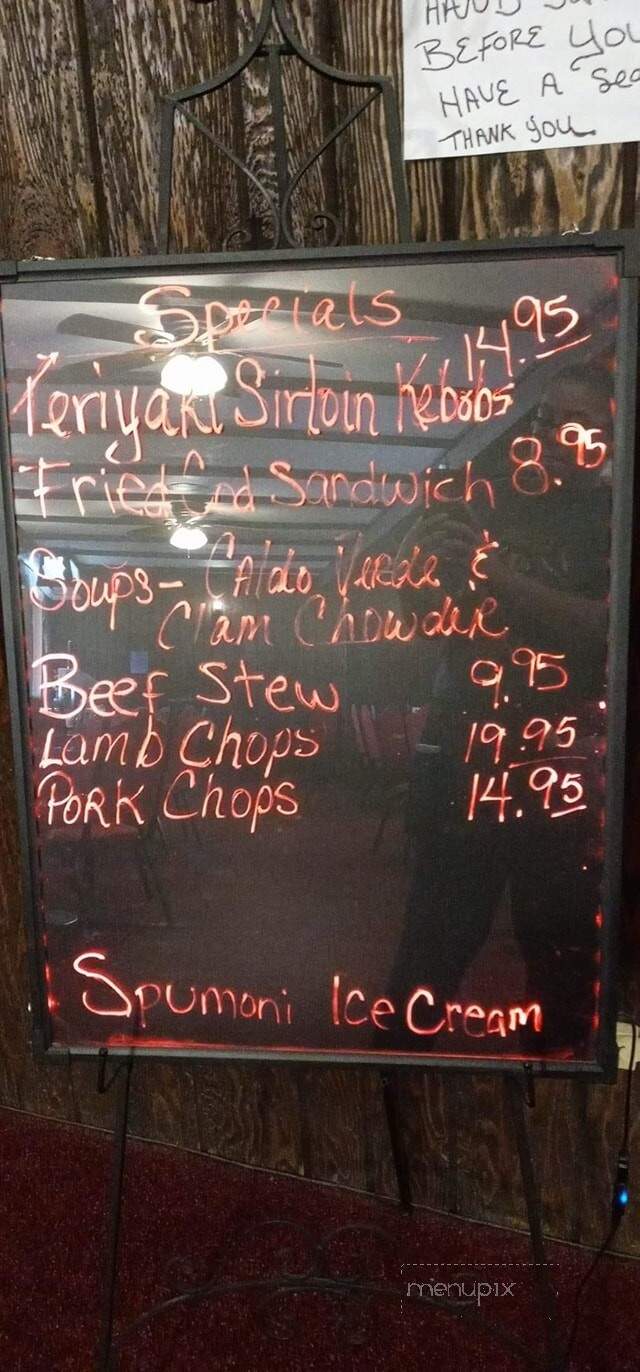 BEFORE YOU
HAVE A Sea
THANK YOU
Specials
14.95
Teriyaki Sirloin Kebobs
Fried Cod Sandwich 8.95
Soups- Caldo Verde &
Clam Chowder
Beef Stew 9.95
Lamb Chops 19.95
Pork Chops 14.95
Spumoni Ice Cream
menupix